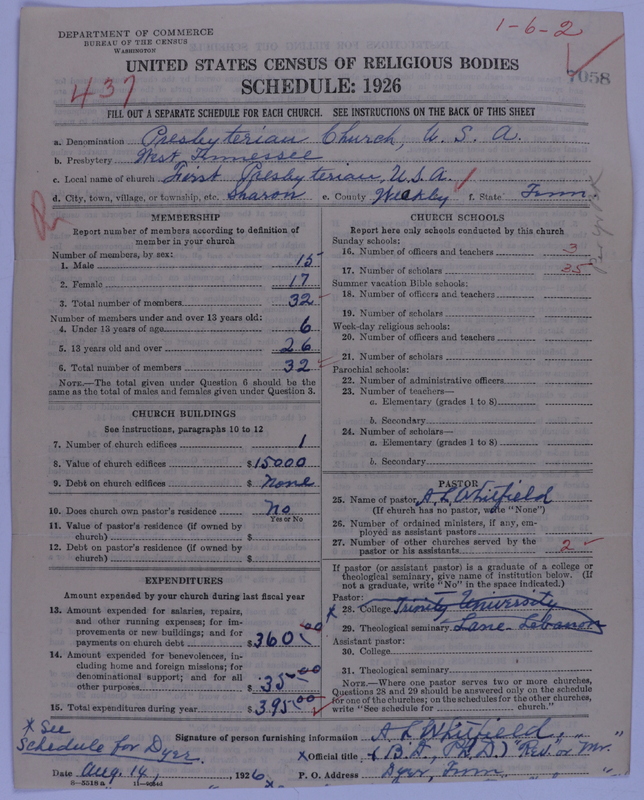 DEPARTMENT OF COMMERCE
BUREAU OF THE CENSUS
WASHINGTON
1-6-2
7058
UNITED STATES CENSUS OF RELIGIOUS BODIES
437
SCHEDULE: 1926
FILL OUT A SEPARATE SCHEDULE FOR EACH CHURCH. SEE INSTRUCTIONS ON THE BACK OF THIS SHEET
a. Denomination Presbyterian Church, U. S. A.
b. Presbytery West Tennessee
c. Local name of church First Presbyterian, U.S.A.
d. City, town, village, or township, etc. Sharon e. County Weakley f. State Tenn
MEMBERSHIP
Report number of members according to definition of
member in your church
Number of members, by sex:
1. Male 15
2. Female 17
3. Total number of members 32
Number of members under and over 13 years old:
4. Under 13 years of age 6
5. 13 years old and over 26
6. Total number of members 32
NOTE.—The total given under Question 6 should be the
same as the total of males and females given under Question 3.
CHURCH BUILDINGS
See instructions, paragraphs 10 to 12
7. Number of church edifices 1
8. Value of church edifices $15000
9. Debt on church edifices $ None
10. Does church own pastor's residence No
Yes or No
11. Value of pastor's residence (if owned by
church) $
12. Debt on pastor's residence (if owned by
church) $
EXPENDITURES
Amount expended by your church during last fiscal year
13. Amount expended for salaries, repairs,
and other running expenses; for im-
provements or new buildings; and for
payments on church debt $360.00
14. Amount expended for benevolences, in-
cluding home and foreign missions; for
denominational support; and for all
other purposes $35.00
15. Total expenditures during year $395.00
CHURCH SCHOOLS
Report here only schools conducted by this church
Sunday schools:
16. Number of officers and teachers 3
17. Number of scholars 35
Summer vacation Bible schools:
18. Number of officers and teachers
19. Number of scholars
Week-day religious schools:
20. Number of officers and teachers
21. Number of scholars
Parochial schools:
22. Number of administrative officers
23. Number of teachers—
a. Elementary (grades 1 to 8)
b. Secondary
24. Number of scholars—
a. Elementary (grades 1 to 8)
b. Secondary
PASTOR
25. Name of pastor A L Whitfield
(If church has no pastor, write "None")
26. Number of ordained ministers, if any, em-
ployed as assistant pastors
27. Number of other churches served by the
pastor or his assistants 2
If pastor (or assistant pastor) is a graduate of a college or
theological seminary, give name of institution below. (If
not a graduate, write "No" in the space indicated.)
Pastor:
x 28. College Trinity University
29. Theological seminary Lane. Lebanon
Assistant pastor:
30. College
31. Theological seminary
NOTE.—Where one pastor serves two or more churches,
Questions 28 and 29 should be answered only on the schedule
for one of the churches; on the schedules for the other churches,
write "See schedule for church."
x See
Schedule for Dyer.
Signature of person furnishing information A L Whitfield
x Official title (B.D., Ph.D.) "Rev." or Mr.
Date Aug. 14, 1926 P. O. Address Dyer, Tenn
8—5518a